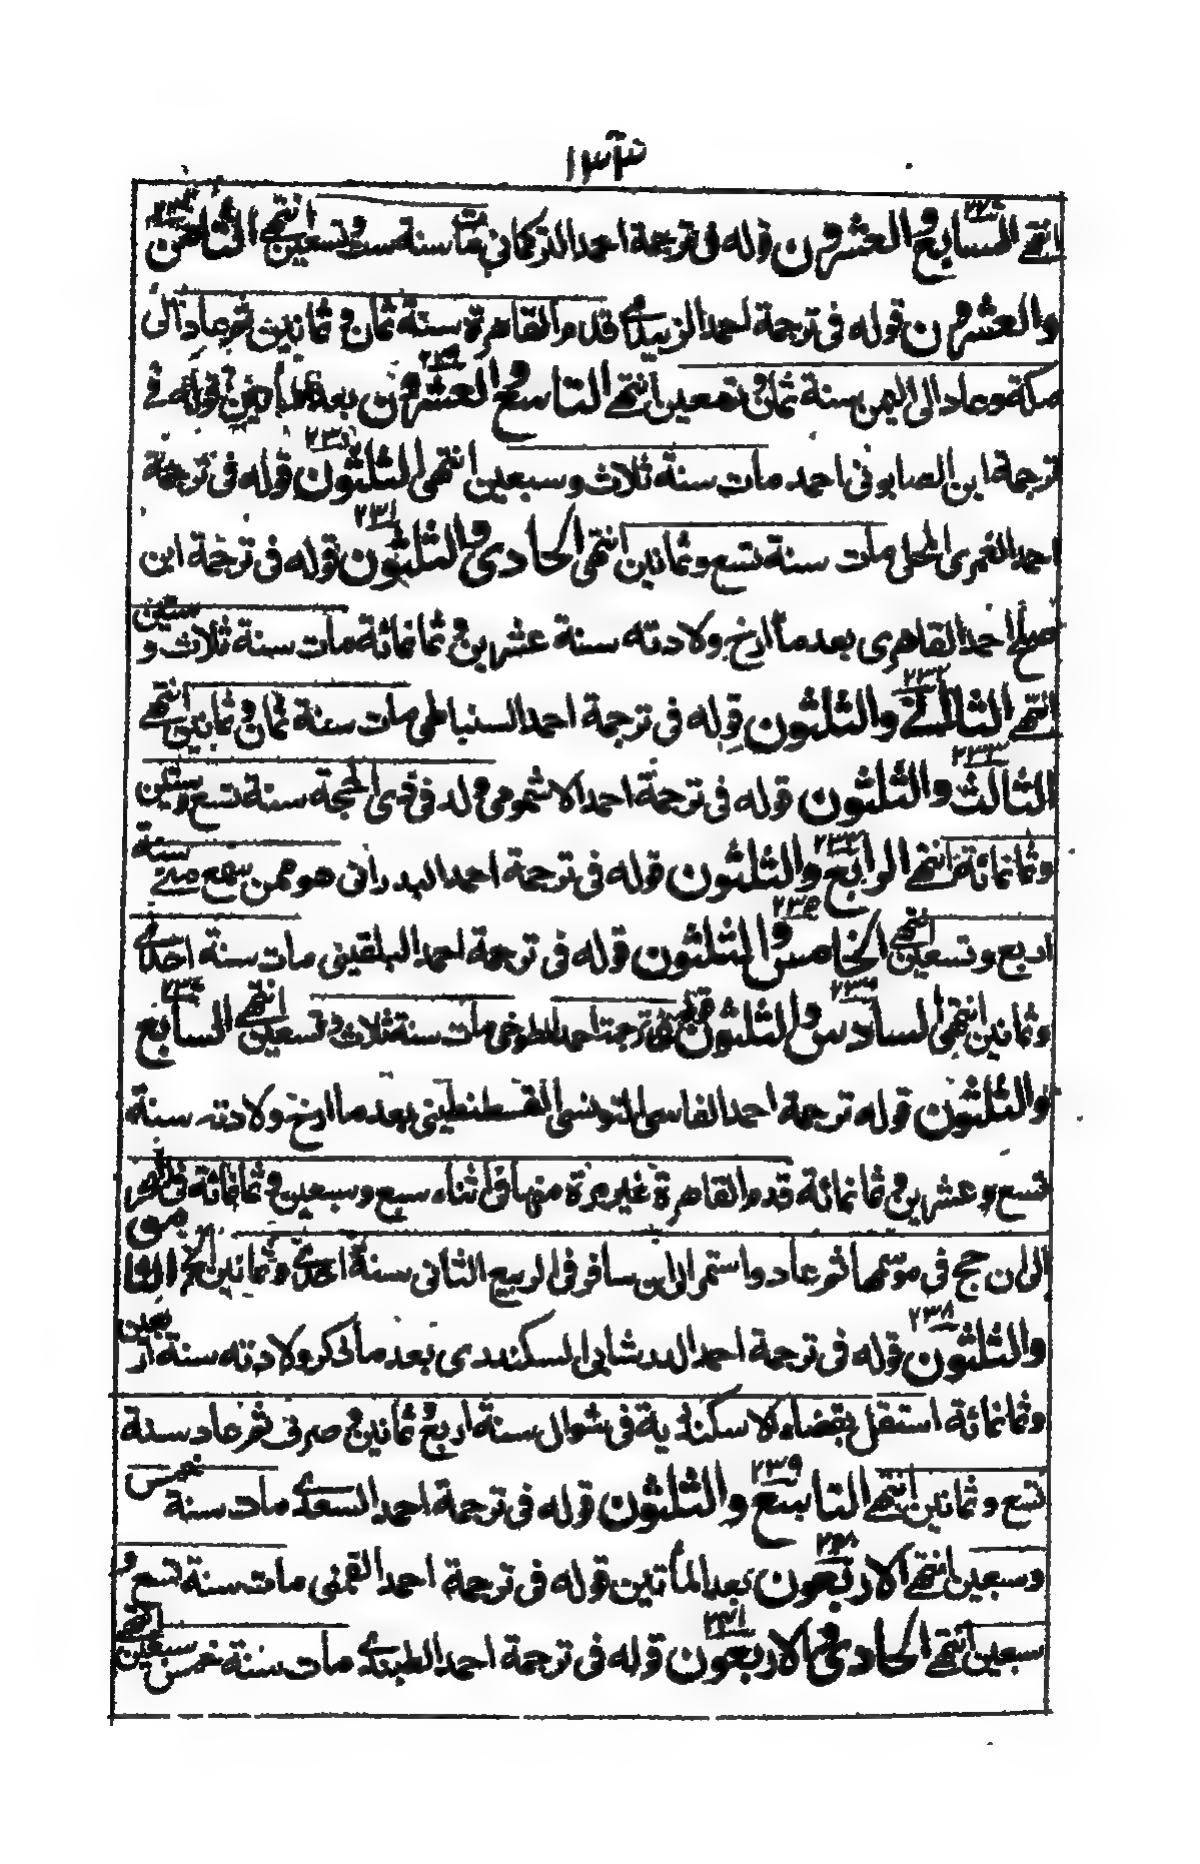 ١٣٣
انتهى السابع والعشرون قوله فى ترجمة احمد التركمانى مات سنة ست وتسعين انتهى الثامن
والعشرون قوله فى ترجمة احمد الزبيدى قدم القاهرة سنة ثمان و ثمانين ثم عاد الى
مكة وعاد الى اليمن سنة ثمان وتسعين انتهى التاسع والعشرون بعد المأتين قوله فى
ترجمة ابن الصابونى احمد مات سنة ثلاث وسبعين انتهى الثلثون قوله فى ترجمة
احمد الغمرى المحلى مات سنة تسع وثمانين انتهى الحادى والثلثون قوله فى ترجمة ابن
صلح احمد القاهرى بعد ما ارخ ولادته سنة عشرين و ثمانمائة مات سنة ثلاث و ستين
انتهى الثانى والثلثون قوله فى ترجمة احمد السنباطى مات سنة ثمان و ثمانين انتهى
الثالث والثلثون قوله فى ترجمة احمد الاشمومى ولد فى ذى الحجة سنة تسع وستين
وثمانمائة انتهى الرابع والثلثون قوله فى ترجمة احمد البدرانى هو ممن سمع منى سنة
اربع وتسعين انتهى الخامس والثلثون قوله فى ترجمة احمد البلقينى مات سنة احدى
وثمانين انتهى السادس والثلثون قوله فى ترجمة احمد الطوخى مات سنة ثلاث وتسعين انتهى السابع
والثلثون قوله ترجمة احمد الفاسى التونسى القسنطينى بعد ما ارخ ولادته سنة
تسع وعشرين و ثمانمائة قدم القاهرة غير مرة منها فى اثناء سبع وسبعين و ثمانمائة فى البحر
الى ان حج فى موسمها ثم عاد واستمر الى ان سافر فى الربيع الثانى سنة احدى وثمانين الخ
والثلثون قوله فى ترجمة احمد السكندرى بعد ما ذكر ولادته سنة
وثمانمائة استقل بقضاء الاسكندرية فى شوال سنة اربع ثمانين و صرف ثم عاد سنة
تسع وثمانين انتهى التاسع والثلثون قوله فى ترجمة احمد السعدى مات سنة خمس
وسبعين انتهى الاربعون بعد المأتين قوله فى ترجمة احمد القمنى مات سنة تسع و
سبعين انتهى الحادى والاربعون قوله فى ترجمة احمد مات سنة خمس سبعين انتهى